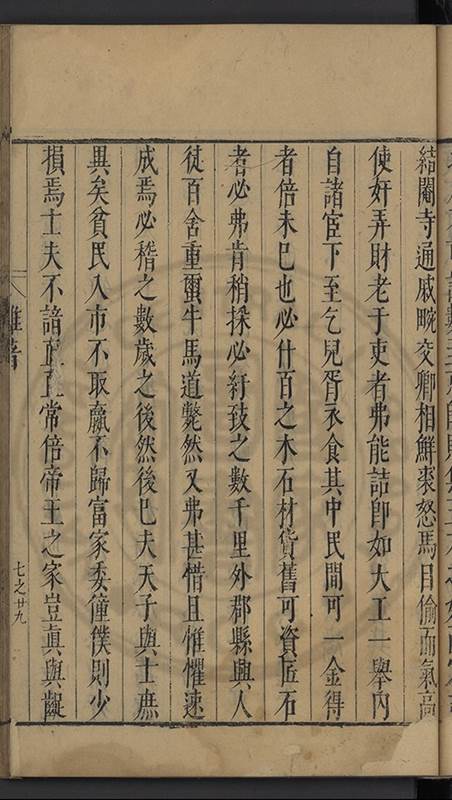 結閹寺通戚畹交卿相鮮裘怒馬目偷而氣高
使奸弄財老于吏者弗能詰卽如大工一舉內
自諸宦下至乞兒胥衣食其中民間可一金得
者倍未巳也必什百之木石材貨舊可資匠石
者必弗肯稍採必紆致之數千里外郡縣與人
徒百舍重蠒牛馬道斃然又弗甚惜且惟懼速
成焉必稽之數歲之後然後巳夫天子與士庶
異矣貧民入市不取贏不歸富家委僮僕則少
損焉士夫不諳直直常倍帝王之家豈眞與齪
雜著
七之廿九